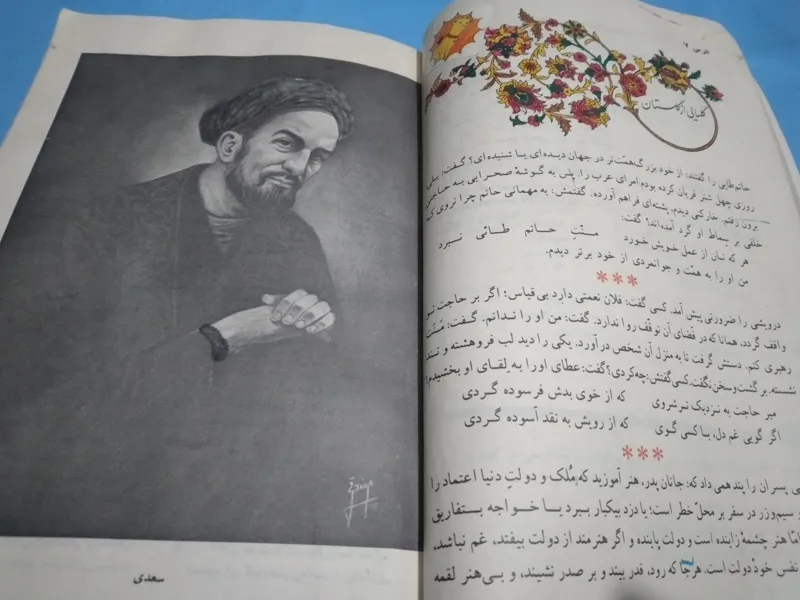 درس ۹
گلهایی از گلستان
حاتم‌طایی را گفتند: از خود بزرگ‌همّت‌تر در جهان دیده‌ای یا شنیده‌ای؟ گفت: بلی
روزی چهل شتر قربان کرده بودم امرای عرب را. پس به گوشهٔ صحرایی به حاجتی
برون رفتم. خارکنی دیدم، پشته‌ای فراهم آورده. گفتمش: به مهمانی حاتم چرا نروی که
خلقی بر سماط او گرد آمده‌اند؟ گفت:
هر که نان از عمل خویش خورد منّتِ حاتم طائی نبرد
من او را به همّت و جوانمردی از خود برتر دیدم.
***
درویشی را ضرورتی پیش آمد. کسی گفت: فلان نعمتی دارد بی‌قیاس؛ اگر بر حاجت تو
واقف گردد، همانا که در قضای آن توقّف روا ندارد. گفت: من او را ندانم. گفت: مَنَت
رهبری کنم. دستش گرفت تا به منزل آن شخص درآورد. یکی را دید لب فروهشته و تند
نشسته. برگشت و سخن نگفت. کسی گفتش: چه کردی؟ گفت: عطای او را به لِقای او بخشیدم!
مبر حاجت به نزدیک ترشروی که از خوی بدش فرسوده گردی
اگر گویی غم دل، با کسی گوی که از رویش به نقد آسوده گردی
***
پسران را پند همی داد که: جانان پدر، هنر آموزید که مُلک و دولتِ دنیا اعتماد را
و سیم و زر در سفر بر محلّ خطر است؛ یا دزد بیکبار ببرد یا خواجه بتفاریق
امّا هنر چشمهٔ زاینده است و دولت پاینده و اگر هنرمند از دولت بیفتد، غم نباشد،
نفس خود دولت است. هرجا که رود، قدر بیند و بر صدر نشیند، و بی‌هنر لقمه
سعدی